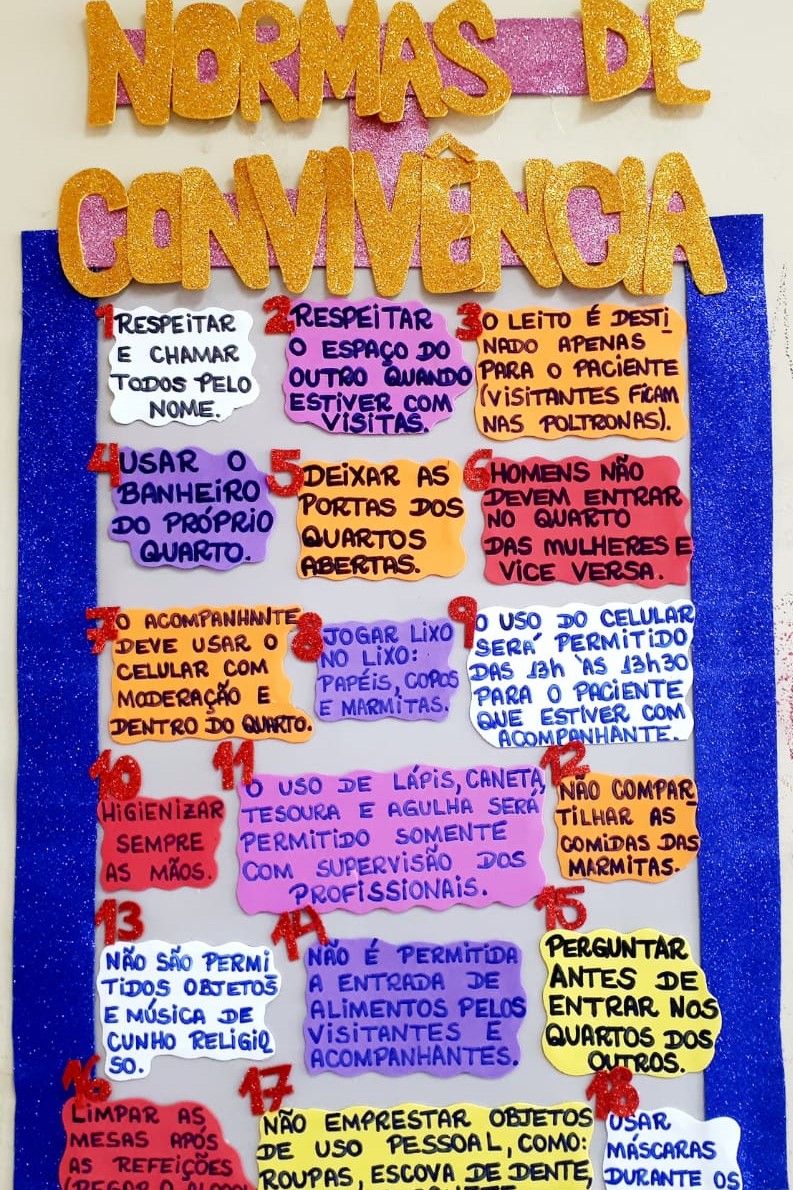 NORMAS DE
CONVIVÊNCIA
1 RESPEITAR
E CHAMAR
TODOS PELO
NOME.
2 RESPEITAR
O ESPAÇO DO
OUTRO QUANDO
ESTIVER COM
VISITAS.
3 O LEITO É DESTI
NADO APENAS
PARA O PACIENTE
(VISITANTES FICAM
NAS POLTRONAS).
4 USAR O
BANHEIRO
DO PRÓPRIO
QUARTO.
5 DEIXAR AS
PORTAS DOS
QUARTOS
ABERTAS.
6 HOMENS NÃO
DEVEM ENTRAR
NO QUARTO
DAS MULHERES E
VICE VERSA.
7 O ACOMPANHANTE
DEVE USAR O
CELULAR COM
MODERAÇÃO E
DENTRO DO QUARTO.
8 JOGAR LIXO
NO LIXO:
PAPÉIS, COPOS
E MARMITAS.
9 O USO DO CELULAR
SERÁ PERMITIDO
DAS 13h ÀS 13h30
PARA O PACIENTE
QUE ESTIVER COM
ACOMPANHANTE.
10 HIGIENIZAR
SEMPRE
AS MÃOS.
11 O USO DE LÁPIS, CANETA,
TESOURA E AGULHA SERÁ
PERMITIDO SOMENTE
COM SUPERVISÃO DOS
PROFISSIONAIS.
12 NÃO COMPAR
TILHAR AS
COMIDAS DAS
MARMITAS.
13 NÃO SÃO PERMI
TIDOS OBJETOS
E MÚSICA DE
CUNHO RELIGIO
SO.
14 NÃO É PERMITIDA
A ENTRADA DE
ALIMENTOS PELOS
VISITANTES E
ACOMPANHANTES.
15 PERGUNTAR
ANTES DE
ENTRAR NOS
QUARTOS DOS
OUTROS.
16 LIMPAR AS
MESAS APÓS
AS REFEIÇÕES
17 NÃO EMPRESTAR OBJETOS
DE USO PESSOAL, COMO:
ROUPAS, ESCOVA DE DENTE,
18 USAR
MÁSCARAS
DURANTE OS